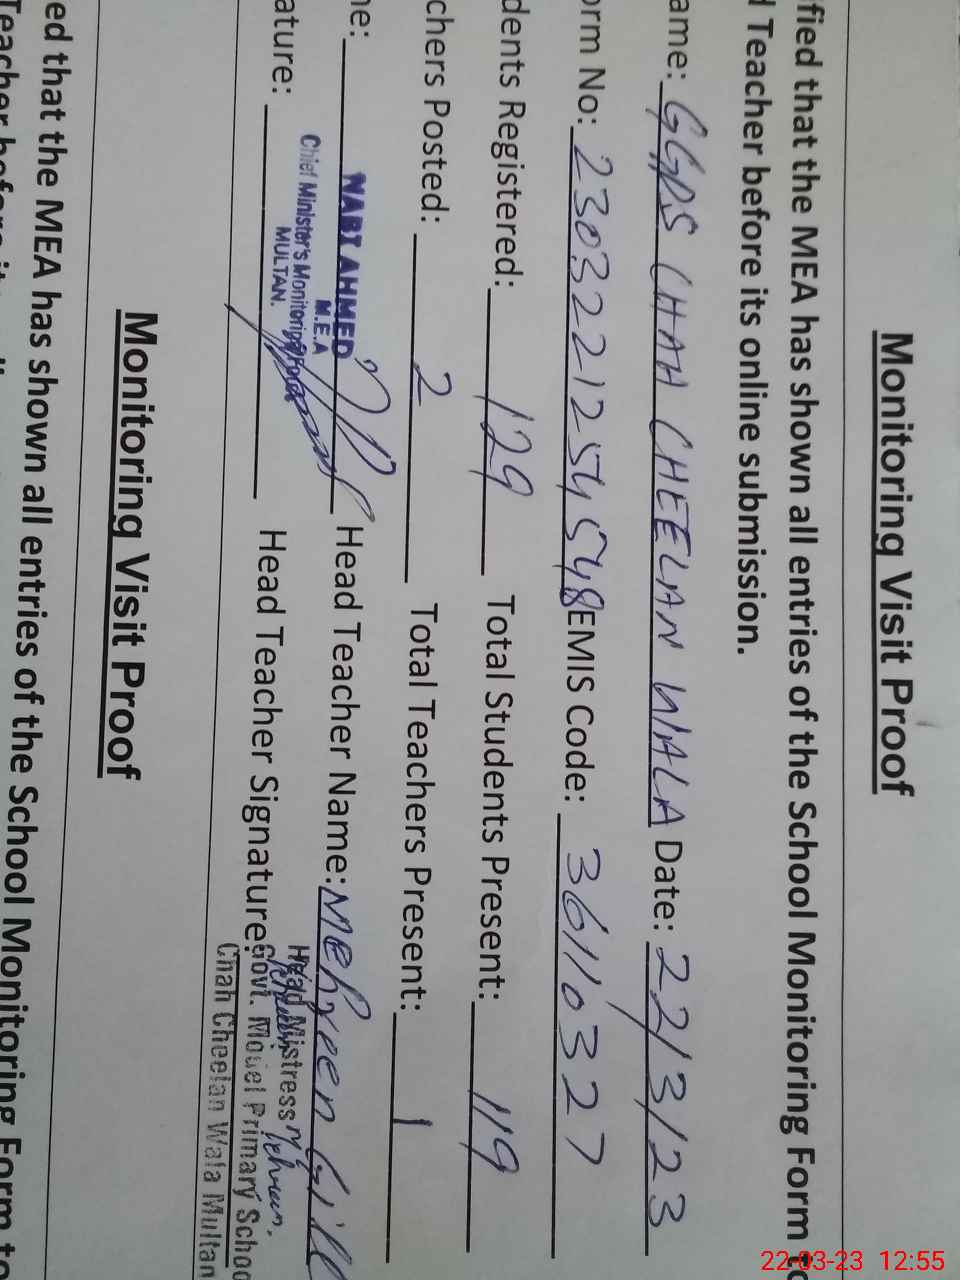 Monitoring Visit Proof
fied that the MEA has shown all entries of the School Monitoring Form to
Teacher before its online submission.
ame: GGPS CHAH CHEELAN WALA Date: 22/3/23
orm No: 230322125454548 EMIS Code: 36110327
dents Registered: 129 Total Students Present: 119
chers Posted: 2 Total Teachers Present: 1
ne: NABI AHMED Head Teacher Name: Mehreen Gill
M.E.A
Chief Minister's Monitoring Force
MULTAN.
ature: Head Teacher Signature:
Head Mistress
Govt. Model Primary Schoo
Chah Cheelan Wala Multan
Monitoring Visit Proof
ed that the MEA has shown all entries of the School Monitoring Form to
Teacher before its
22-03-23 12:55